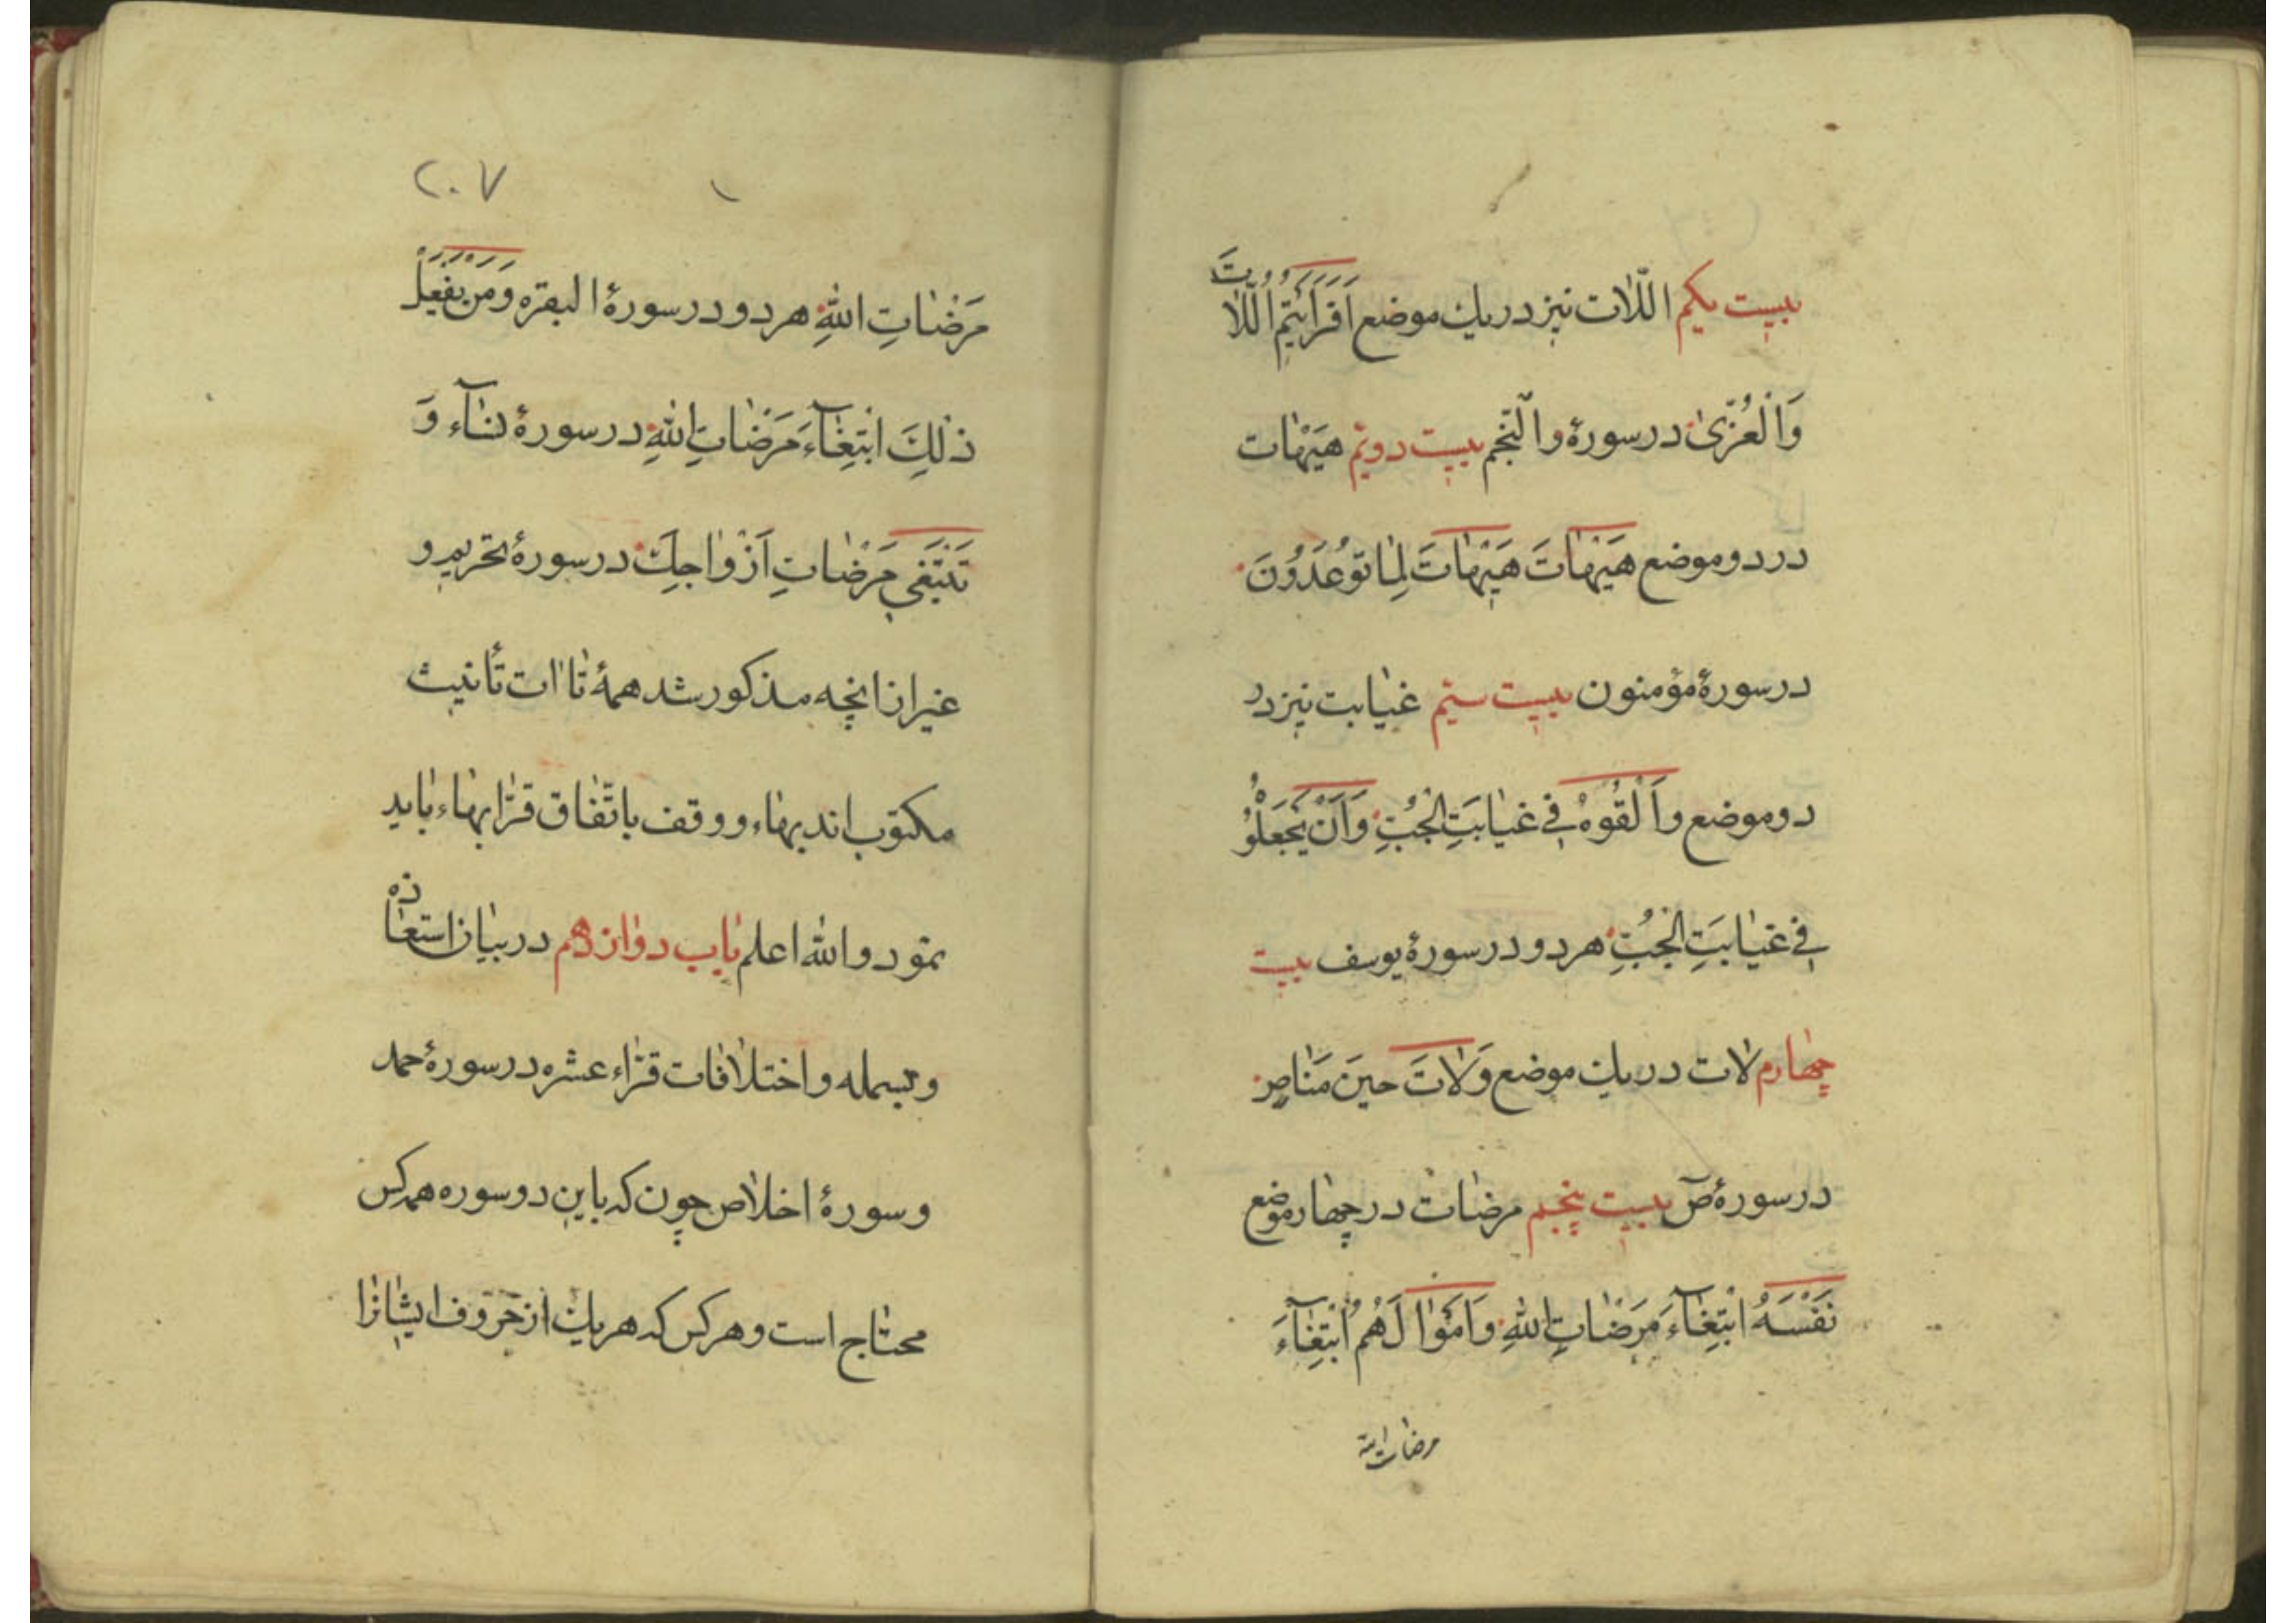 بیست یکم اللّات نیز در یك موضع اَفَرَاَیْتُمُ اللّٰاتَ
وَالْعُزّىٰ در سورهٔ والنّجم بیست دویّم هَیْهٰات
در دو موضع هَیْهٰاتَ هَیْهٰاتَ لِمٰا تُوعَدُونَ
در سورهٔ مؤمنون بیست سیّم غیٰابت نیز در
دو موضع وَاَلْقُوهُ فِي غَیٰابَتِ الْجُبِّ وَاَنْ یَجْعَلُوْهُ
فِي غَیٰابَتِ الْجُبِّ هر دو در سورهٔ یوسف بیست
چهارم لات در یك موضع وَلٰاتَ حینَ مَنٰاصٍ
در سورهٔ صٓ بیست پنجم مرضٰات در چهٰار موضع
نَفْسَهُ ابْتِغٰآءَ مَرَضٰاتِ اللّٰهِ وَاَمْوٰالَهُمُ ابْتِغٰآءَ
مرضات الله
٢٠٧
مَرَضٰاتِ اللّٰهِ هر دو در سورهٔ البقره وَمَنْ یَفْعَلْ
ذٰلِكَ ابْتِغٰآءَ مَرَضٰاتِ اللّٰهِ در سورهٔ نسٰآء وَ
تَبْتَغِي مَرَضٰاتِ اَزْوٰاجِكَ در سورهٔ تحریم و
غیر از انچه مذكور شد همهٔ تٰاات تأنیث
مكتوب اند بهٰاء و وقف باتّفٰاق قرّٰا بهٰاء بٰاید
نمود والله اعلم بٰاب دوٰازدهم در بیٰان استعٰاذه
و بسمله و اختلافات قرّٰاء عشره در سورهٔ حمد
و سورهٔ اخلاص چون كه باین دو سوره همه كس
محتٰاج است و هر كس كه هر یك از حروف ایشٰانرٰا